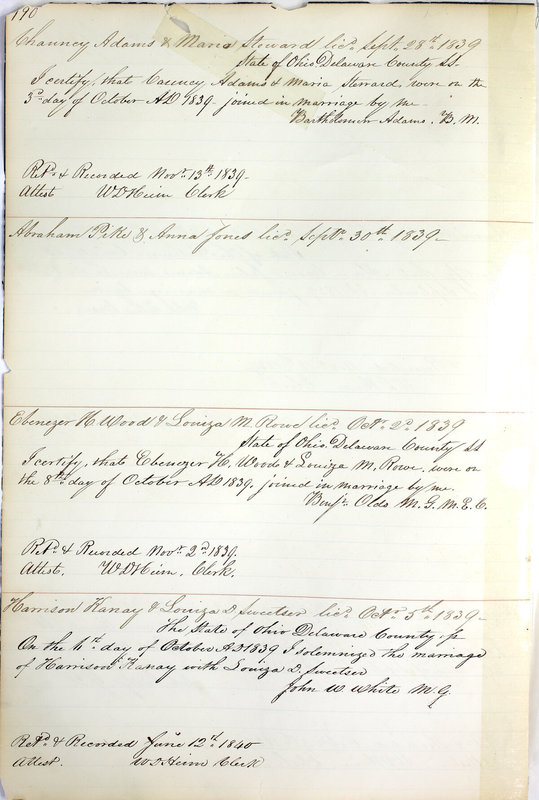 190
Chauncy Adams & Maria Steward licd. Sept. 28th. 1839
State of Ohio Delaware County SS.
I certify, that Cauncy Adams & Maria Sterrard, were on the
3d. day of October AD 1839 - joined in marriage by me
Bartholomew Adams. B. M.
Retd. & Recorded Novr. 13th. 1839 -
Attest W D Heim Clerk
Abraham Pike & Anna Jones licd. Septr. 30th. 1839 -
Ebenezer H. Wood & Louiza M. Rowe licd. Octr. 2d. 1839
State of Ohio Delaware County SS
I certify, that Ebenezer H. Wood & Louiza M. Rowe, were on
the 8th. day of October AD 1839, joined in marriage by me.
Benjn. Olds M. G. M. E. C.
Retd. & Recorded Novr. 2d. 1839.
Attest. W D Heim, Clerk.
Harrison Kanay & Louiza D. Sweetser licd. Octr. 5th. 1839 -
The State of Ohio Delaware County
On the day of October AD 1839 I solemnized the marriage
of Harrison Kanay with Louiza D. Sweetser
John W. White M. G.
Retd. & Recorded June 12th. 1840
Attest. W D Heim Clerk